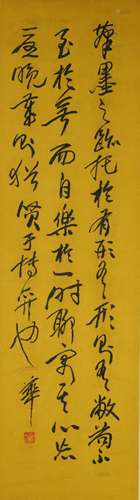 筆墨之跡托於有形有形則有弊苟不
至於無而自樂於一時聊寓其心忘
憂晚歲則猶賢于博弈也